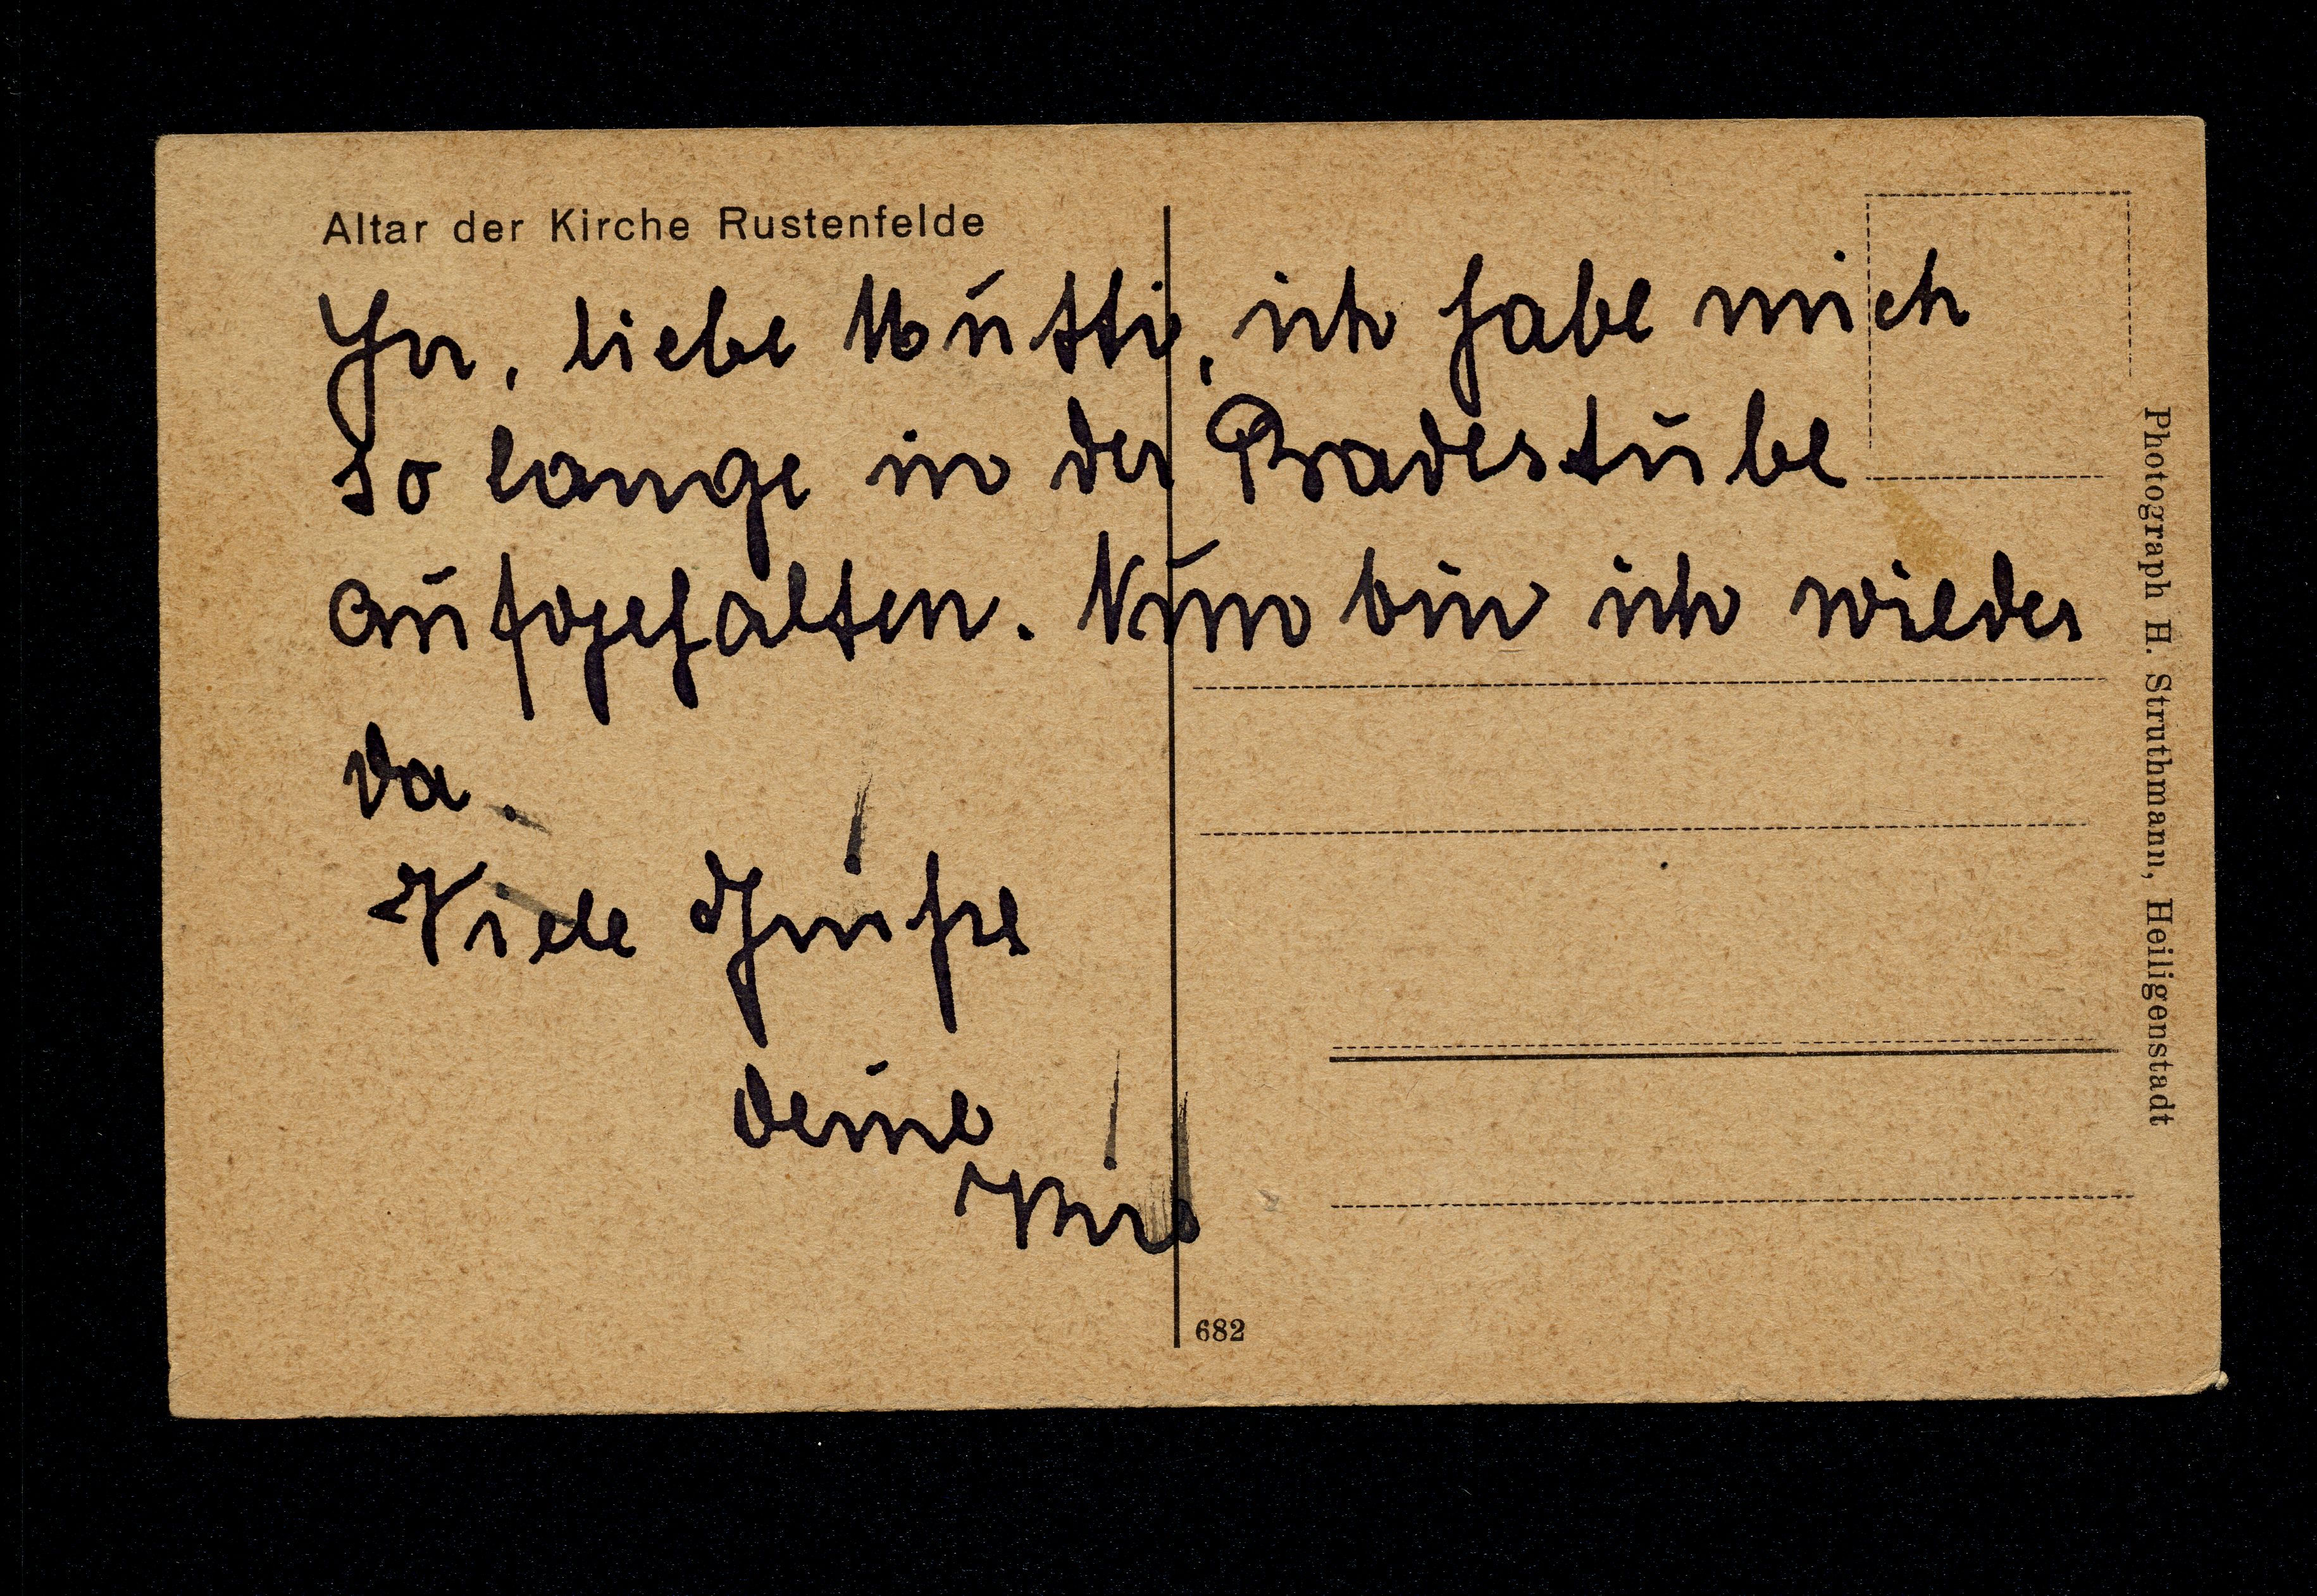 Altar der Kirche Rustenfelde
Ja, liebe Mutti, ich habe mich
so lange in der Badestube
aufgehalten. Nun bin ich wieder
da.
Viele Grüße
deine
Photograph H. Struthmann, Heiligenstadt
682